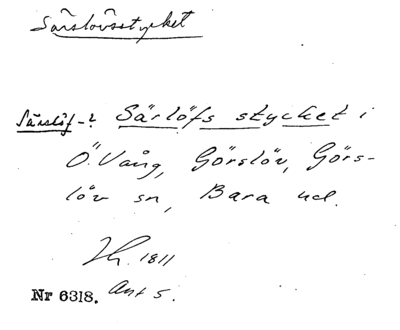 Särslövsstycket
Särslöf-? Särlöfs stycket i
Ö. Vång, Görslöv, Görs-
löv sn, Bara hd.
1811
Nr 6318. Ant 5.